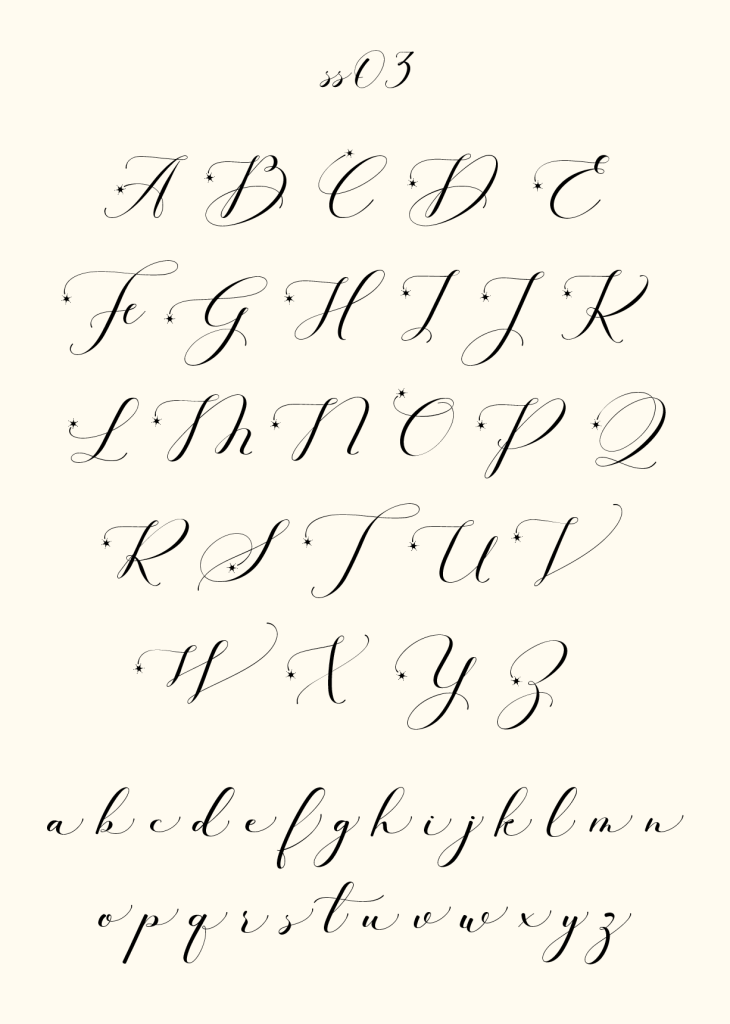 ss03
A B C D E
F G H I J K
L M N O P Q
R S T U V
W X Y Z
a b c d e f g h i j k l m n
o p q r s t u v w x y z